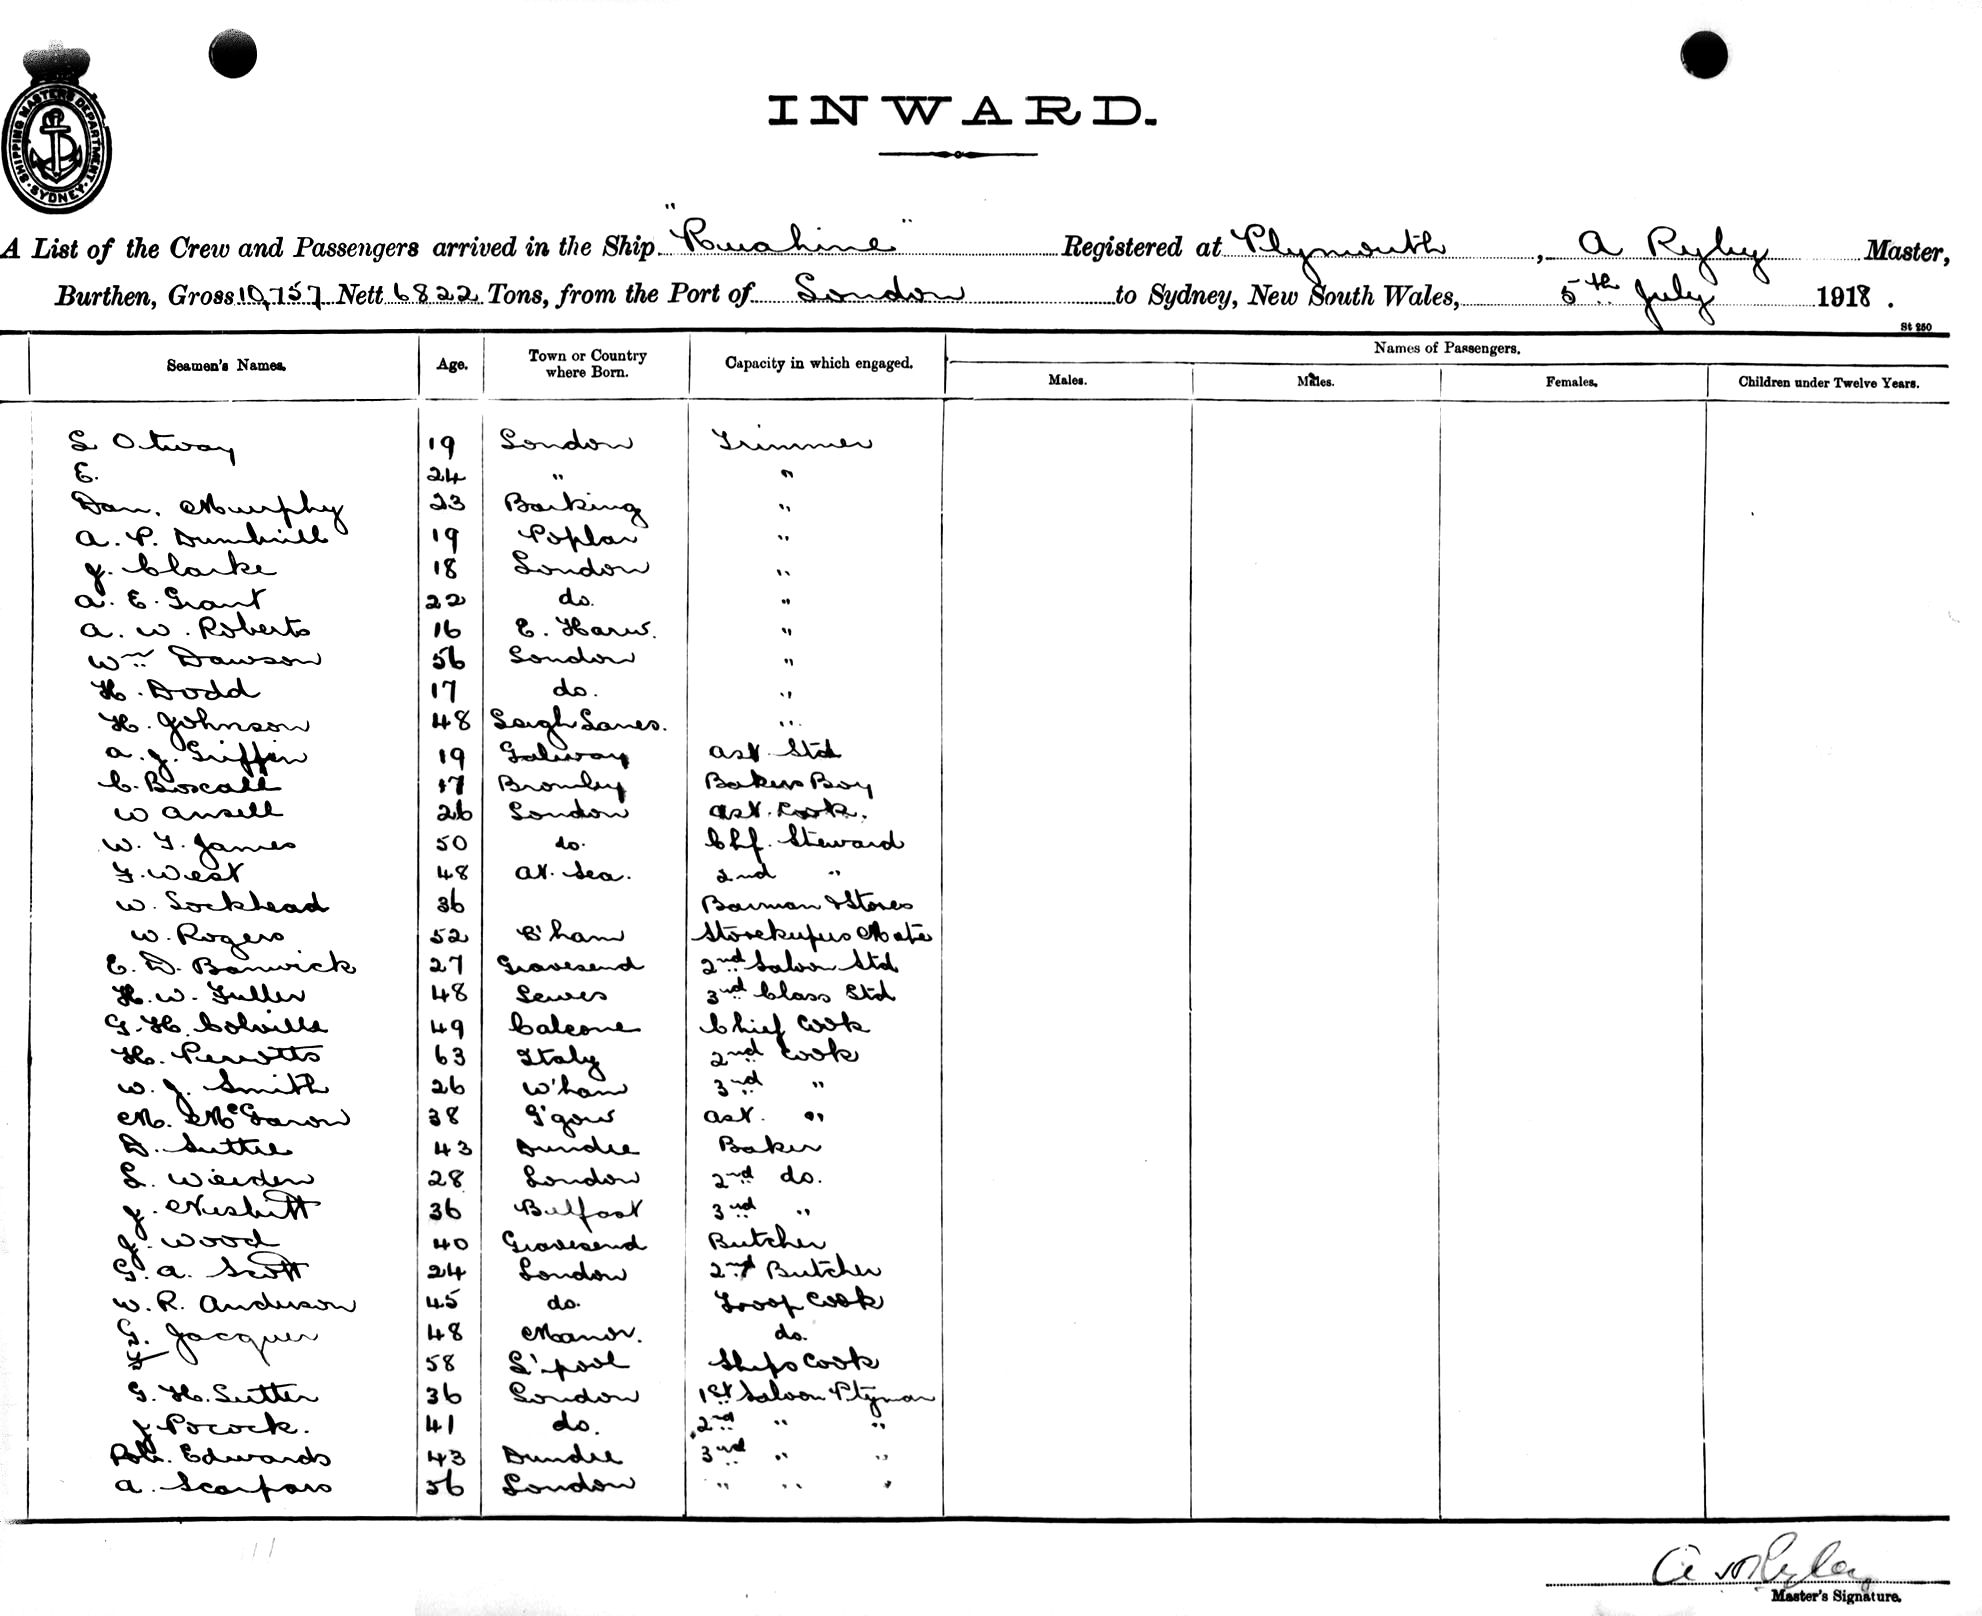 SHIPPING MASTERS DEPARTMENT SYDNEY
INWARD.
A List of the Crew and Passengers arrived in the Ship "Ruahine" Registered at Plymouth, A Ryley Master,
Burthen, Gross 10,757 Nett 6822 Tons, from the Port of London to Sydney, New South Wales, 5th July 1918.
St 250
Seamen's Names. Age. Town or Country where Born. Capacity in which engaged. Names of Passengers.
Males. Males. Females. Children under Twelve Years.
L Otway 19 London Trimmer
E. 24 " "
Dan. Murphy 23 Barking "
A. P. Dumbrill 19 Poplar "
J. Clarke 18 London "
A. E. Grant 22 do. "
A. W. Roberts 16 E. Ham. "
Wm Dawson 56 London "
H. Dodd 17 do. "
H. Johnson 48 Leigh Lancs. "
A. J. Griffin 19 Galway Ast. Std
C. Boxcall 17 Bromley Bakers Boy
W Ansell 26 London Ast. Cook.
W. T. James 50 do. Chf. Steward
F. West 48 At. Sea. 2nd "
W. Lockhead 36 Barman & Stores
W. Rogers 52 B'ham Storekeepers Mate
E. D. Banwick 27 Gravesend 2nd Saloon Std
H. W. Fuller 48 Lewes 3rd Class Std
G. H. Colville 49 Chief Cook
H. Perotts 63 Italy 2nd Cook
W. J. Smith 26 W'ham 3rd "
M. McGarow 38 G'gow Ast. "
D. Suttie 43 Dundee Baker
L. Wierden 28 London 2nd do.
J. Nesbitt 36 Belfast 3rd "
J. Wood 40 Gravesend Butcher
G. A. Scott 24 London 2nd Butcher
W. R. Anderson 45 do. Troop Cook
G. Jacques 48 do.
58 L'pool Ships Cook
G. H. Sutter 36 London 1st Saloon Ptyman
J Pocock. 41 do. 2nd " "
Robt. Edwards 43 Dundee 3rd " "
A. Scarfaro 56 London " " "
A W Ryley
Master's Signature.